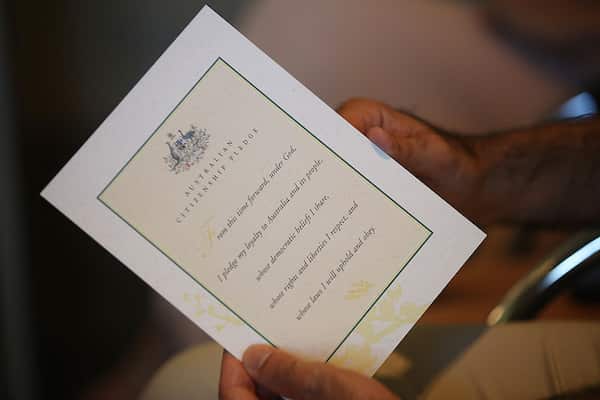 AUSTRALIAN
CITIZENSHIP PLEDGE
From this time forward, under God,
I pledge my loyalty to Australia and its people,
whose democratic beliefs I share,
whose rights and liberties I respect, and
whose laws I will uphold and obey.